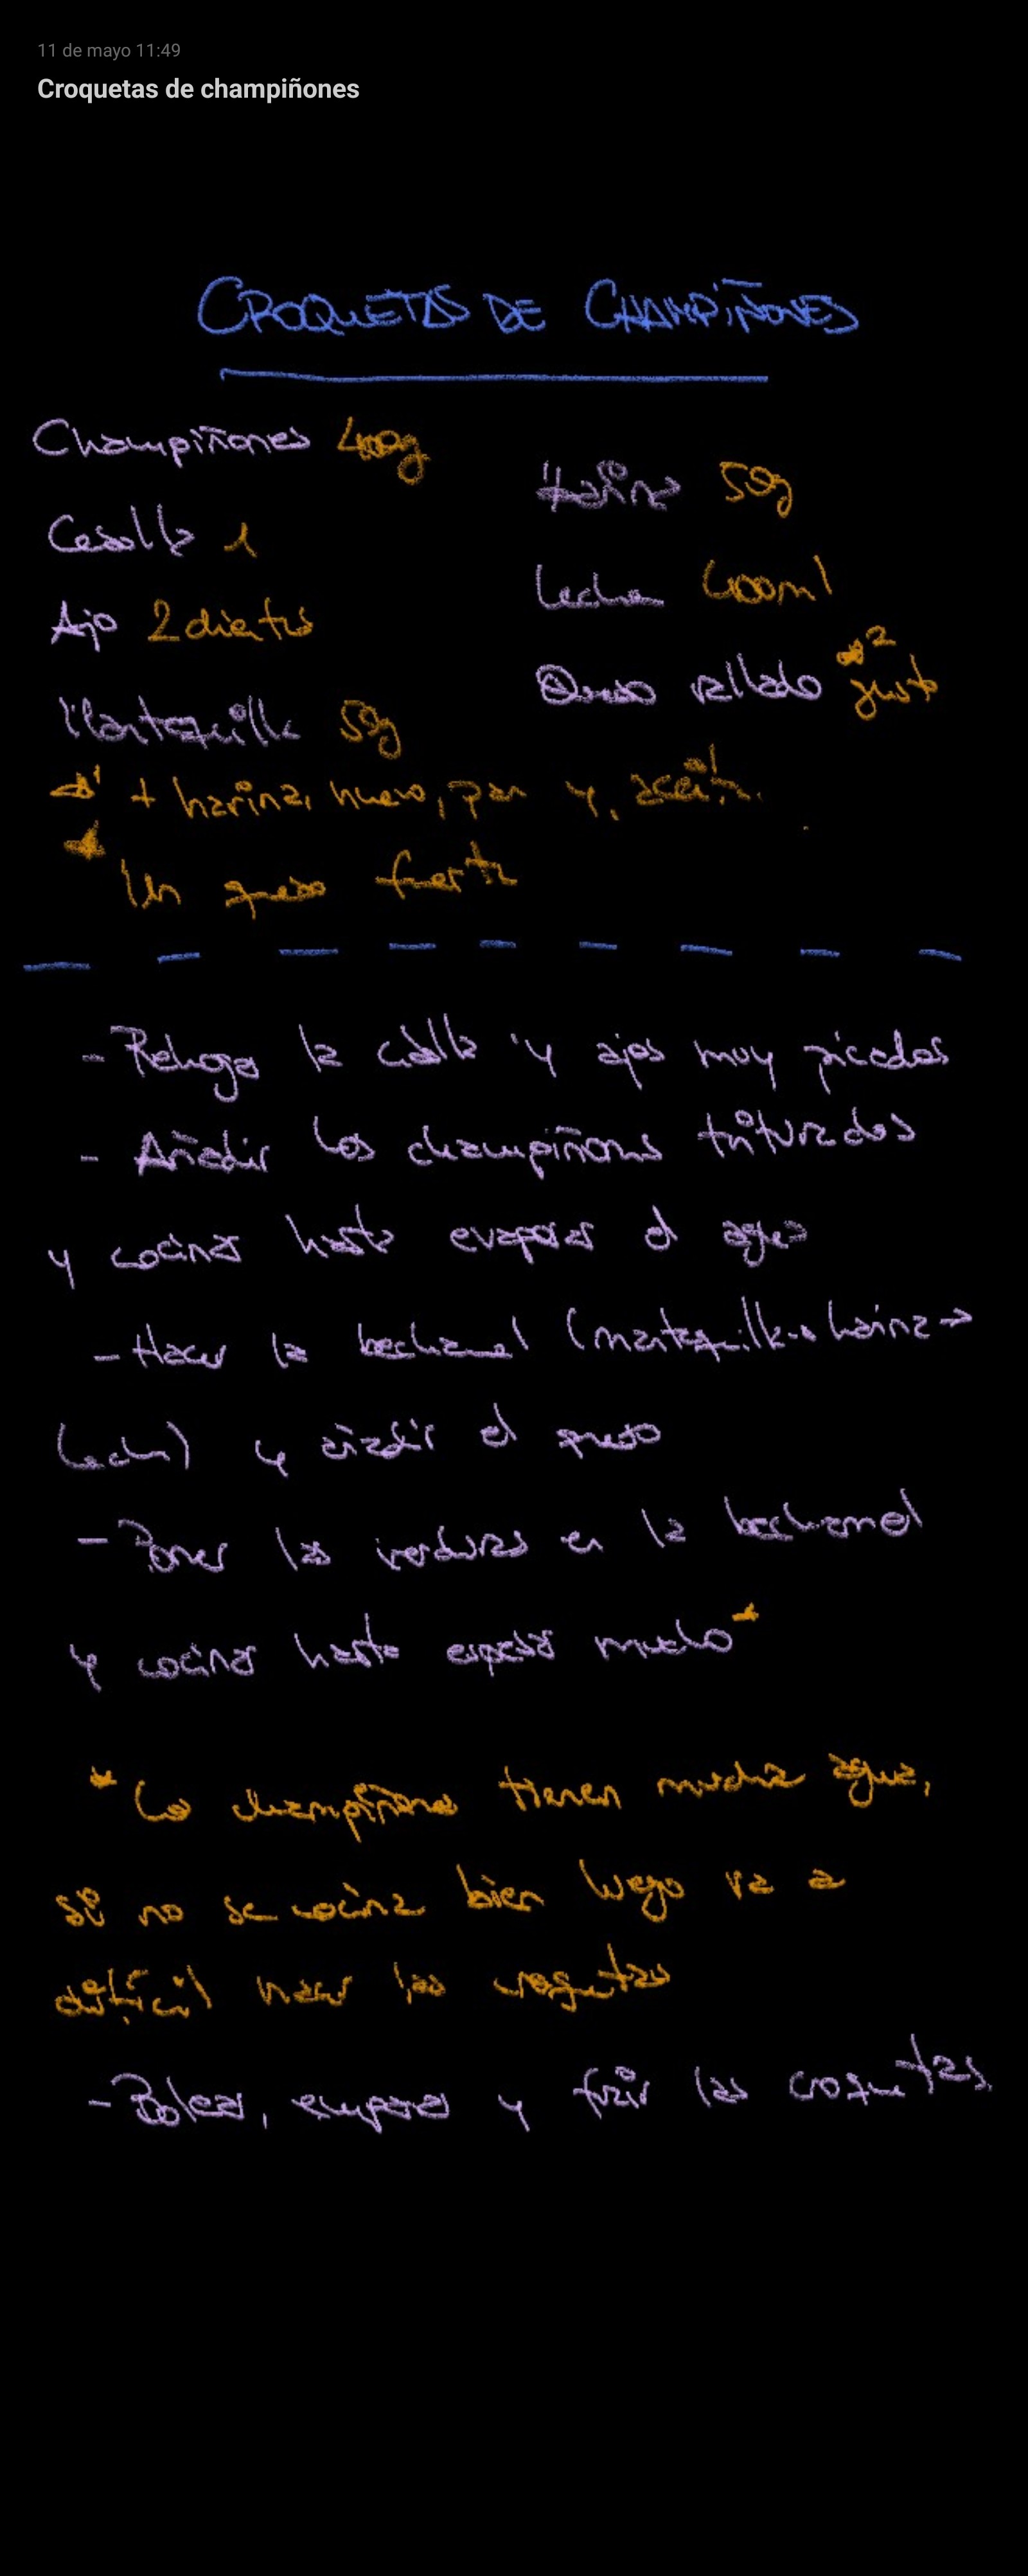 11 de mayo 11:49
Croquetas de champiñones
CROQUETAS DE CHAMPIÑONES
Champiñones 400g
Cebolla 1
Ajo 2 dientes
Mantequilla 50g
Harina 50g
Leche 400ml
Queso rallado *2 gusto
*1 + harina, huevo, pan y, aceite.
* Un queso fuerte
- Rehogar la cebolla y ajos muy picados
- Añadir los champiñones triturados
y cocinar hasta evaporar el agua
- Hacer la bechamel (mantequilla + harina →
leche) y añadir el queso
- Poner las verduras en la bechamel
y cocinar hasta espesar mucho*
* Los champiñones tienen mucha agua,
si no se cocina bien luego va a
difícil hacer las croquetas
- Bolear, empanar y freír las croquetas.